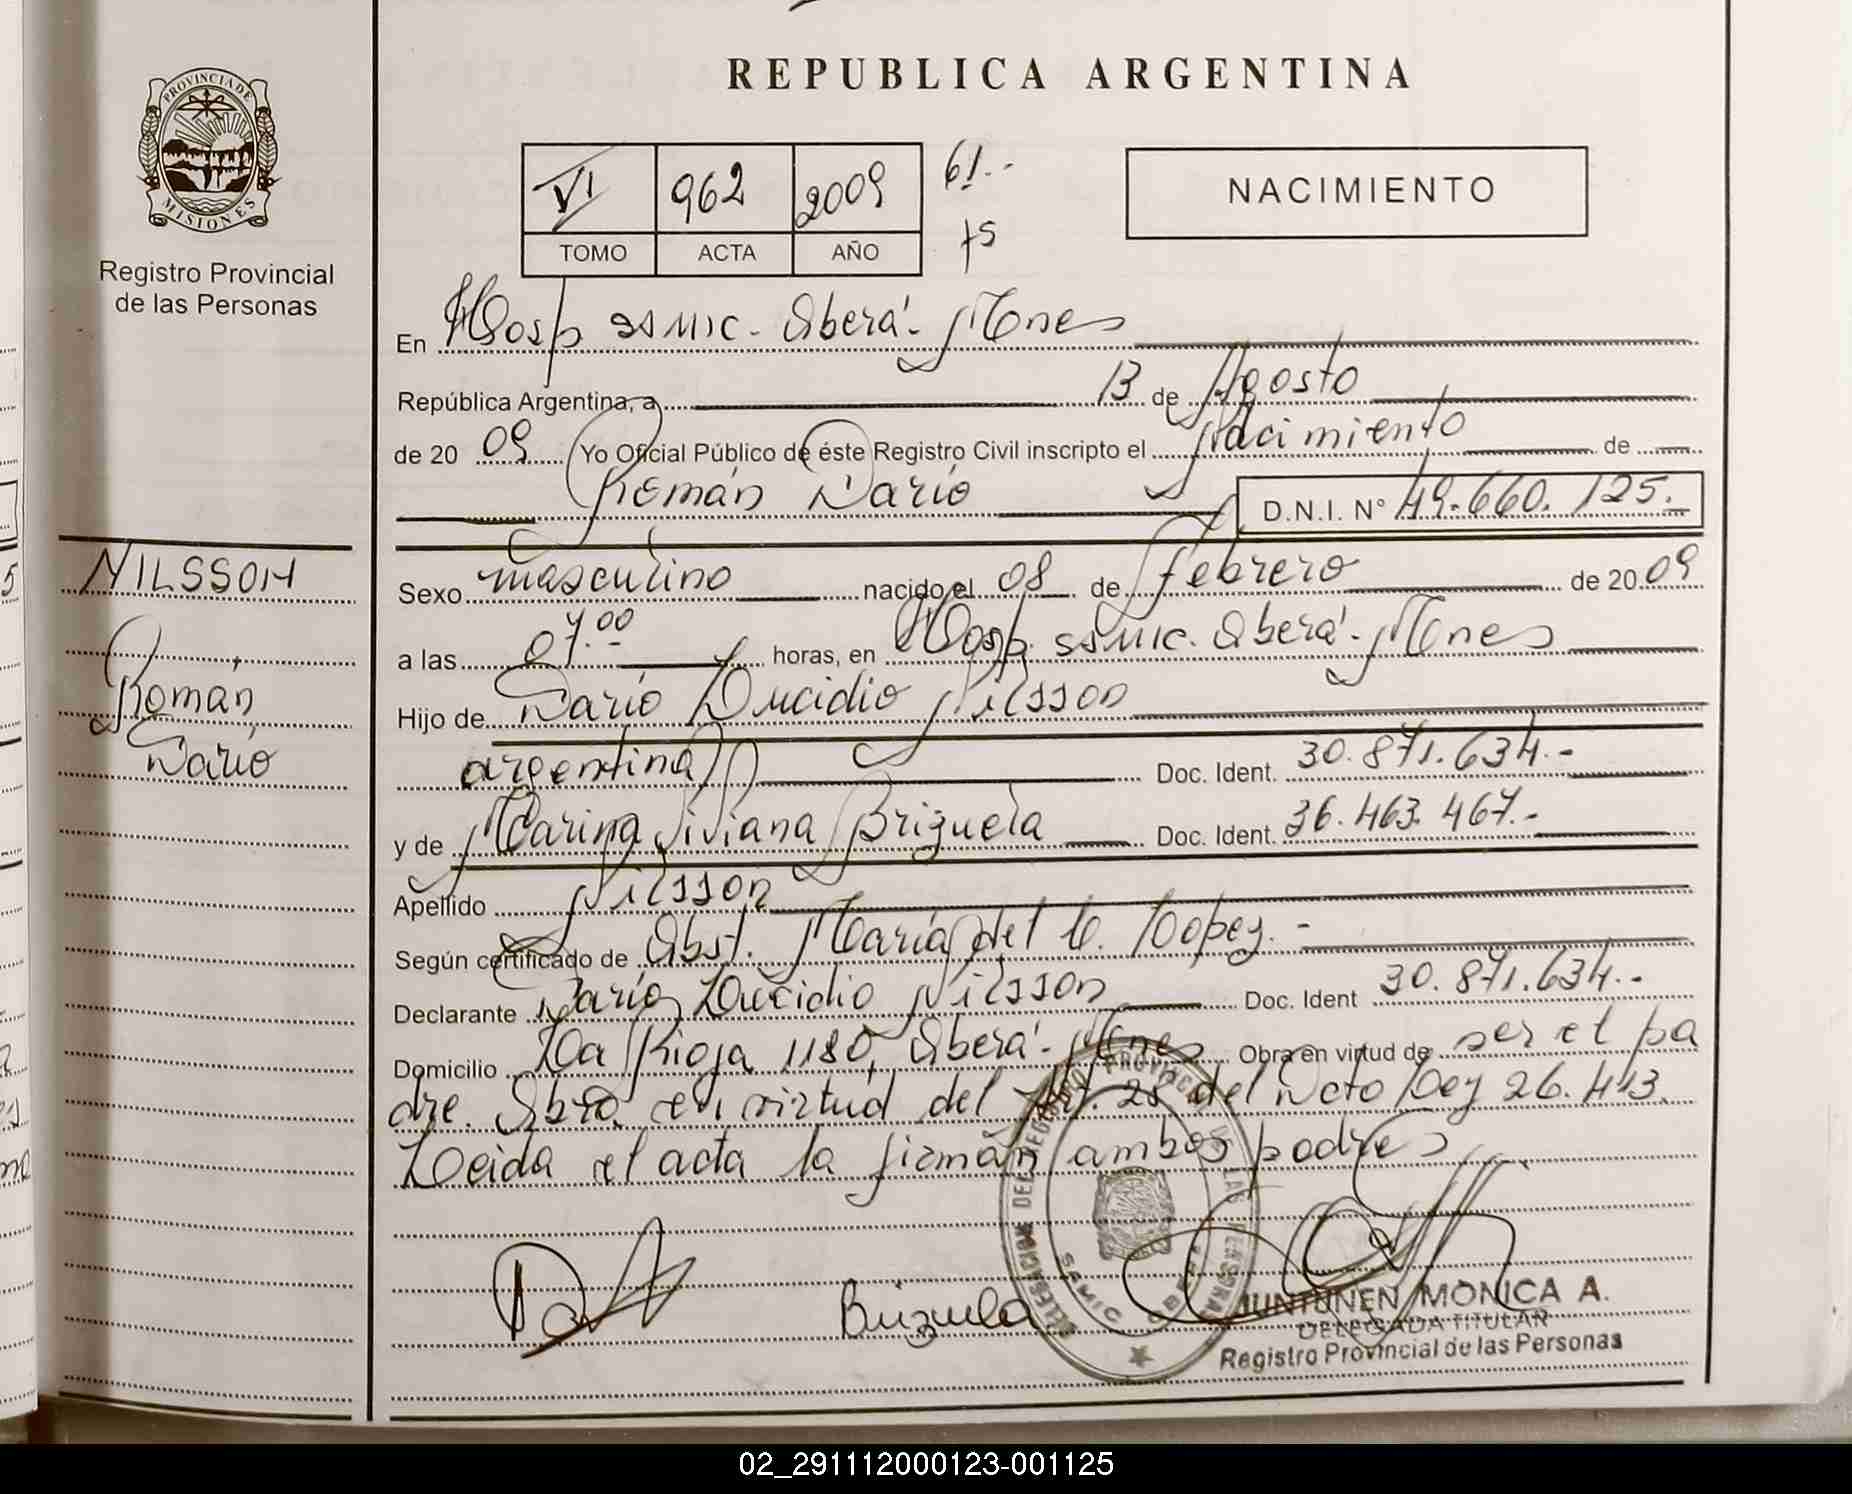 REPUBLICA ARGENTINA
PROVINCIA DE
MISIONES
Registro Provincial
de las Personas
VI 962 2009 61.-
TOMO ACTA AÑO
NACIMIENTO
En Hosp SAMIC - Oberá - Mnes
República Argentina, a 13 de Agosto
de 20 09 Yo Oficial Público de éste Registro Civil inscripto el Nacimiento de
Román Darío D.N.I. N° 49.660.125.-
NILSSON
Román
Darío
Sexo masculino nacido el 08 de febrero de 20 09
a las 07.00 horas, en Hosp. SAMIC. Oberá - Mnes
Hijo de Darío Lucidio Nilsson
argentina Doc. Ident. 30.871.634.-
y de Marina Viviana Brizuela Doc. Ident. 36.463.467.-
Apellido Nilsson
Según certificado de Obst. María del C. Lopez.-
Declarante Darío Lucidio Nilsson Doc. Ident 30.871.634.-
Domicilio La Rioja 1180, Oberá - Mnes Obra en virtud de ser el pa
dre. Obra en virtud del Art. 28 del Dcto Ley 26.413.
Leida el acta la firman ambos padres
Brizuela
DELEGACION DEL REGISTRO PROVINCIAL DE LAS PERSONAS
SAMIC OBERA
JUNTUNEN MONICA A.
DELEGADA TITULAR
Registro Provincial de las Personas
02_291112000123-001125